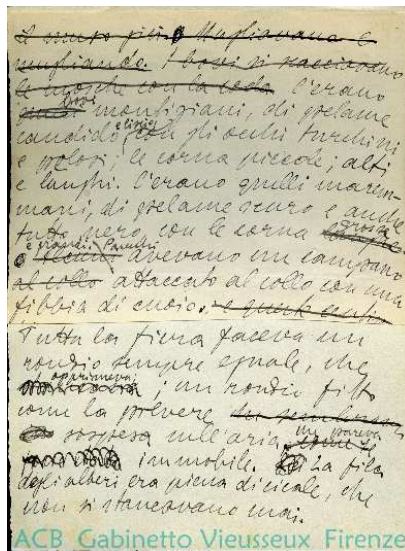 e muso più Mugliavano e
mugliando. I bovi si cacciavano
le mosche con la coda C'erano
bovi
monfigiani, di pelame
candido e lisci, con gli occhi turchini
e pelosi; le corna piccole; alti
e lunghi. C'erano quelli marem-
mani, di pelame scuro e anche
tutto nero, con le corna grosse
e grandi. Parecchi
avevano un campano
al collo attaccato al collo con una
fibbia di cuoio. e
Tutta la fiera faceva un
ronzìo sempre eguale, che
opprimeva; un ronzìo fitto
come la polvere
sospesa nell'aria, mi pareva
immobile. La fila
degli alberi era piena di cicale, che
non si stancavano mai.
ACB Gabinetto Vieusseux Firenze